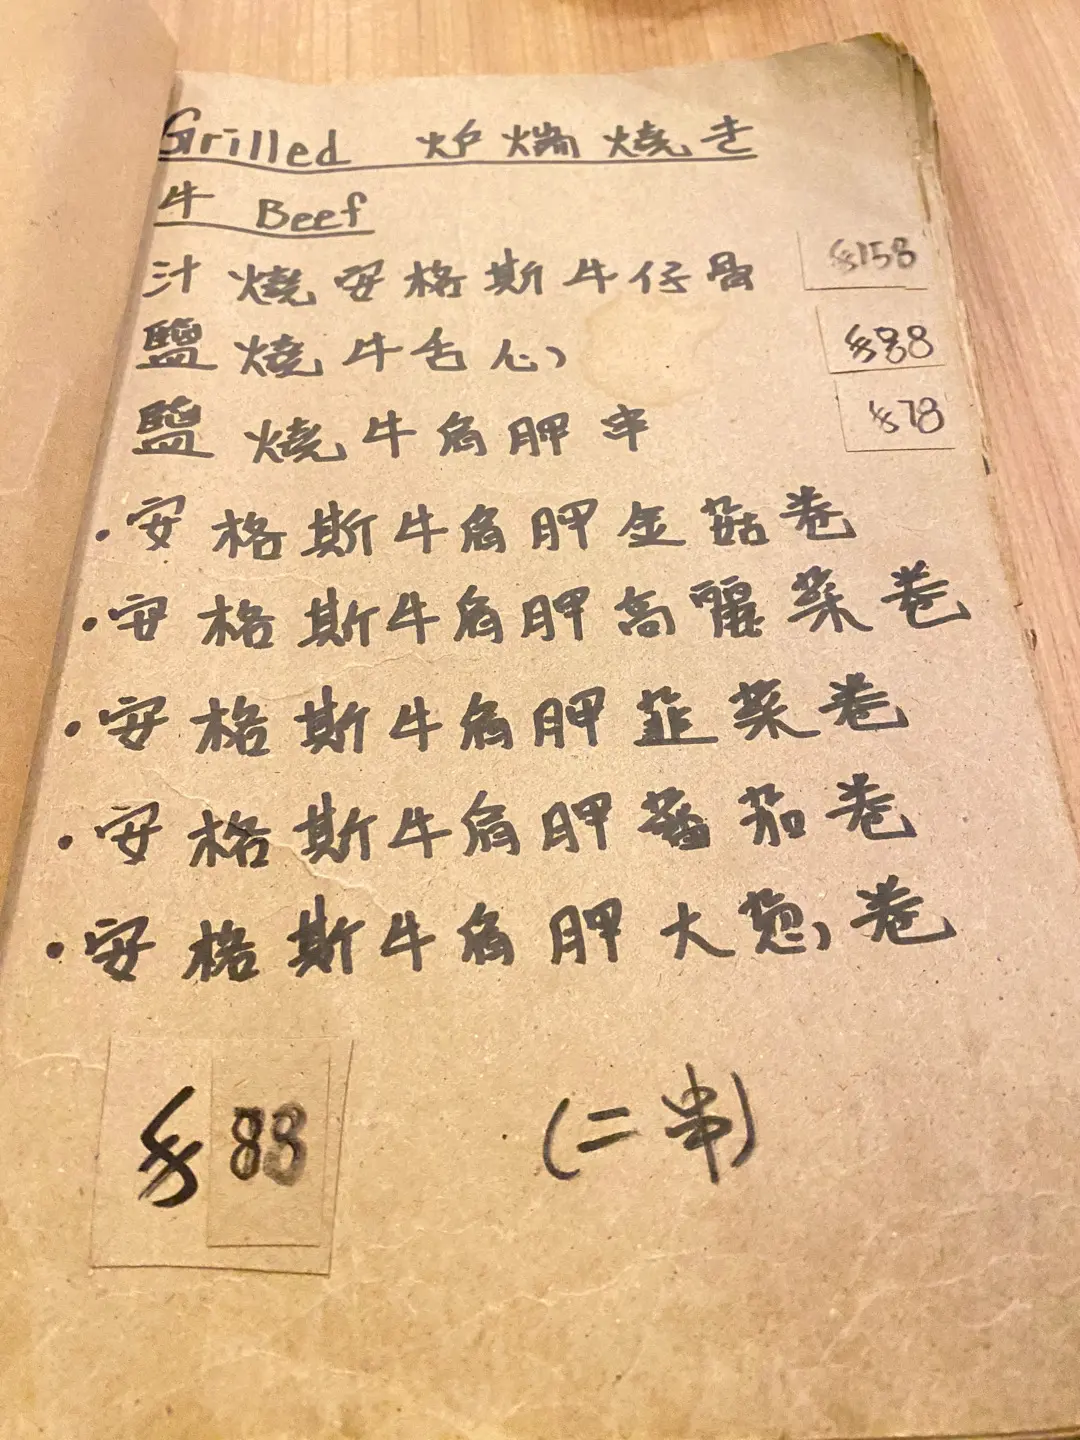 Grilled 炉端燒き
牛 Beef
汁燒安格斯牛仔骨 $158
鹽燒牛舌心 $88
鹽燒牛肩胛串 $78
·安格斯牛肩胛金菇卷
·安格斯牛肩胛高麗菜卷
·安格斯牛肩胛韮菜卷
·安格斯牛肩胛蕃茄卷
·安格斯牛肩胛大葱卷
$88 (二串)